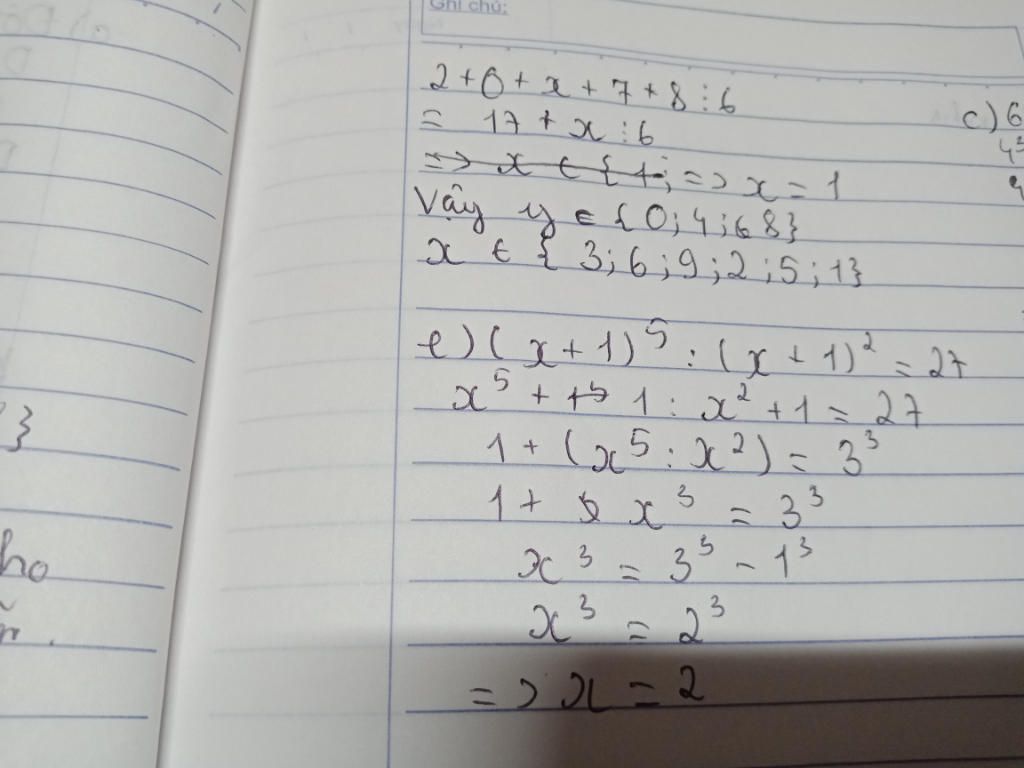 Ghi chú:
2 + 6 + x + 7 + 8 : 6
= 17 + x : 6
=> x ∈ { 1; => x = 1
Vậy y ∈ {0; 4; 6 8}
x ∈ { 3; 6; 9; 2; 5; 1}
e) (x + 1)⁵ : (x + 1)² = 27
x⁵ + 1 : x² + 1 = 27
1 + (x⁵ : x²) = 3³
1 + x³ = 3³
x³ = 3³ - 1³
x³ = 2³
=> x = 2
c) 6
4²
}
ho